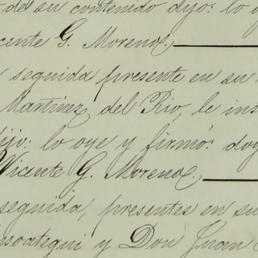 de su contenido dijo: lo o
icente G. Moreno.
seguida presente en su
Martinez del Rio, le ins
dijo: lo oye y firmó: doy
Vicente G. Moreno.
seguida, presentes en su
y Don Juan